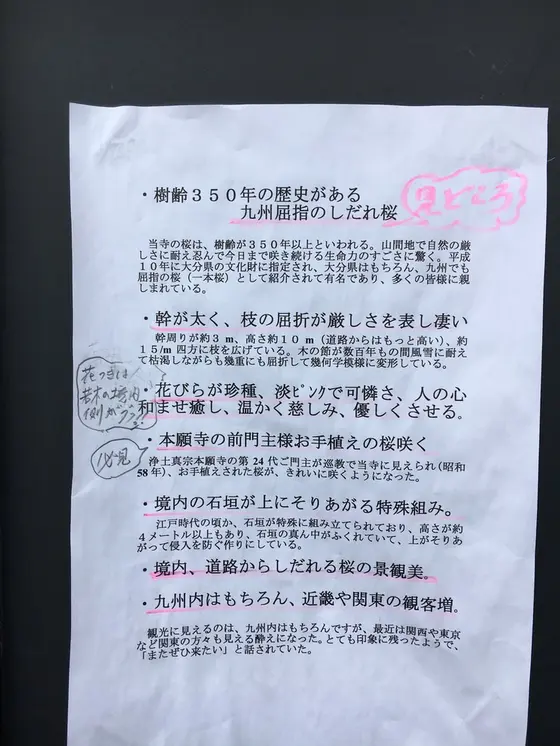 ・樹齢３５０年の歴史がある
九州屈指のしだれ桜
見どころ
当寺の桜は、樹齢が３５０年以上といわれる。山間地で自然の厳
しさに耐え忍んで今日まで咲き続ける生命力のすごさに驚く。平成
１０年に大分県の文化財に指定され、大分県はもちろん、九州でも
屈指の桜（一本桜）として紹介されて有名であり、多くの皆様に親
しまれている。
・幹が太く、枝の屈折が厳しさを表し凄い
幹周りが約３ｍ、高さ約１０ｍ（道路からはもっと高い）、約
１５/ｍ四方に枝を広げている。木の節が数百年もの間風雪に耐え
て枯渇しながらも幾重にも屈折して幾何学模様に変形している。
花つきは
若木の境内
側がグラ!
・花びらが珍種、淡ﾋﾟﾝｸで可憐さ、人の心
和ませ癒し、温かく慈しみ、優しくさせる。
・本願寺の前門主様お手植えの桜咲く
必見
浄土真宗本願寺の第24代ご門主が巡教で当寺に見えられ(昭和
58年)、お手植えされた桜が、きれいに咲くようになった。
・境内の石垣が上にそりあがる特殊組み。
江戸時代の頃か、石垣が特殊に組み立てられており、高さが約
４メートル以上もあり、石垣の真ん中がふくれていて、上がそりあ
がって侵入を防ぐ作りにしている。
・境内、道路からしだれる桜の景観美。
・九州内はもちろん、近畿や関東の観客増。
観光に見えるのは、九州内はもちろんですが、最近は関西や東京
など関東の方々も見える酔えになった。とても印象に残ったようで、
「またぜひ来たい」と話されていた。